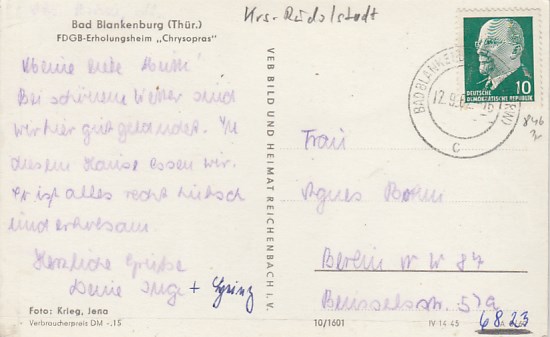 Bad Blankenburg (Thür.)
FDGB-Erholungsheim „Chrysopras"
Krs. Rudolstadt
Meine liebe Mutti!
Bei schönem Wetter sind
wir hier gut gelandet. In
diesem Hause essen wir.
Er ist alles recht hübsch
und erholsam
Herzliche Grüße
Deine Inge +
Foto: Krieg, Jena
Verbraucherpreis DM -.15
VEB BILD UND HEIMAT REICHENBACH I. V.
10/1601
IV-14-45
DEUTSCHE
DEMOKRATISCHE REPUBLIK
10
BAD BLANKENBURG
12.9.62
c
846
Frau
Agnes Bohm
Berlin N W 87
Beusselstr. 57a
6823